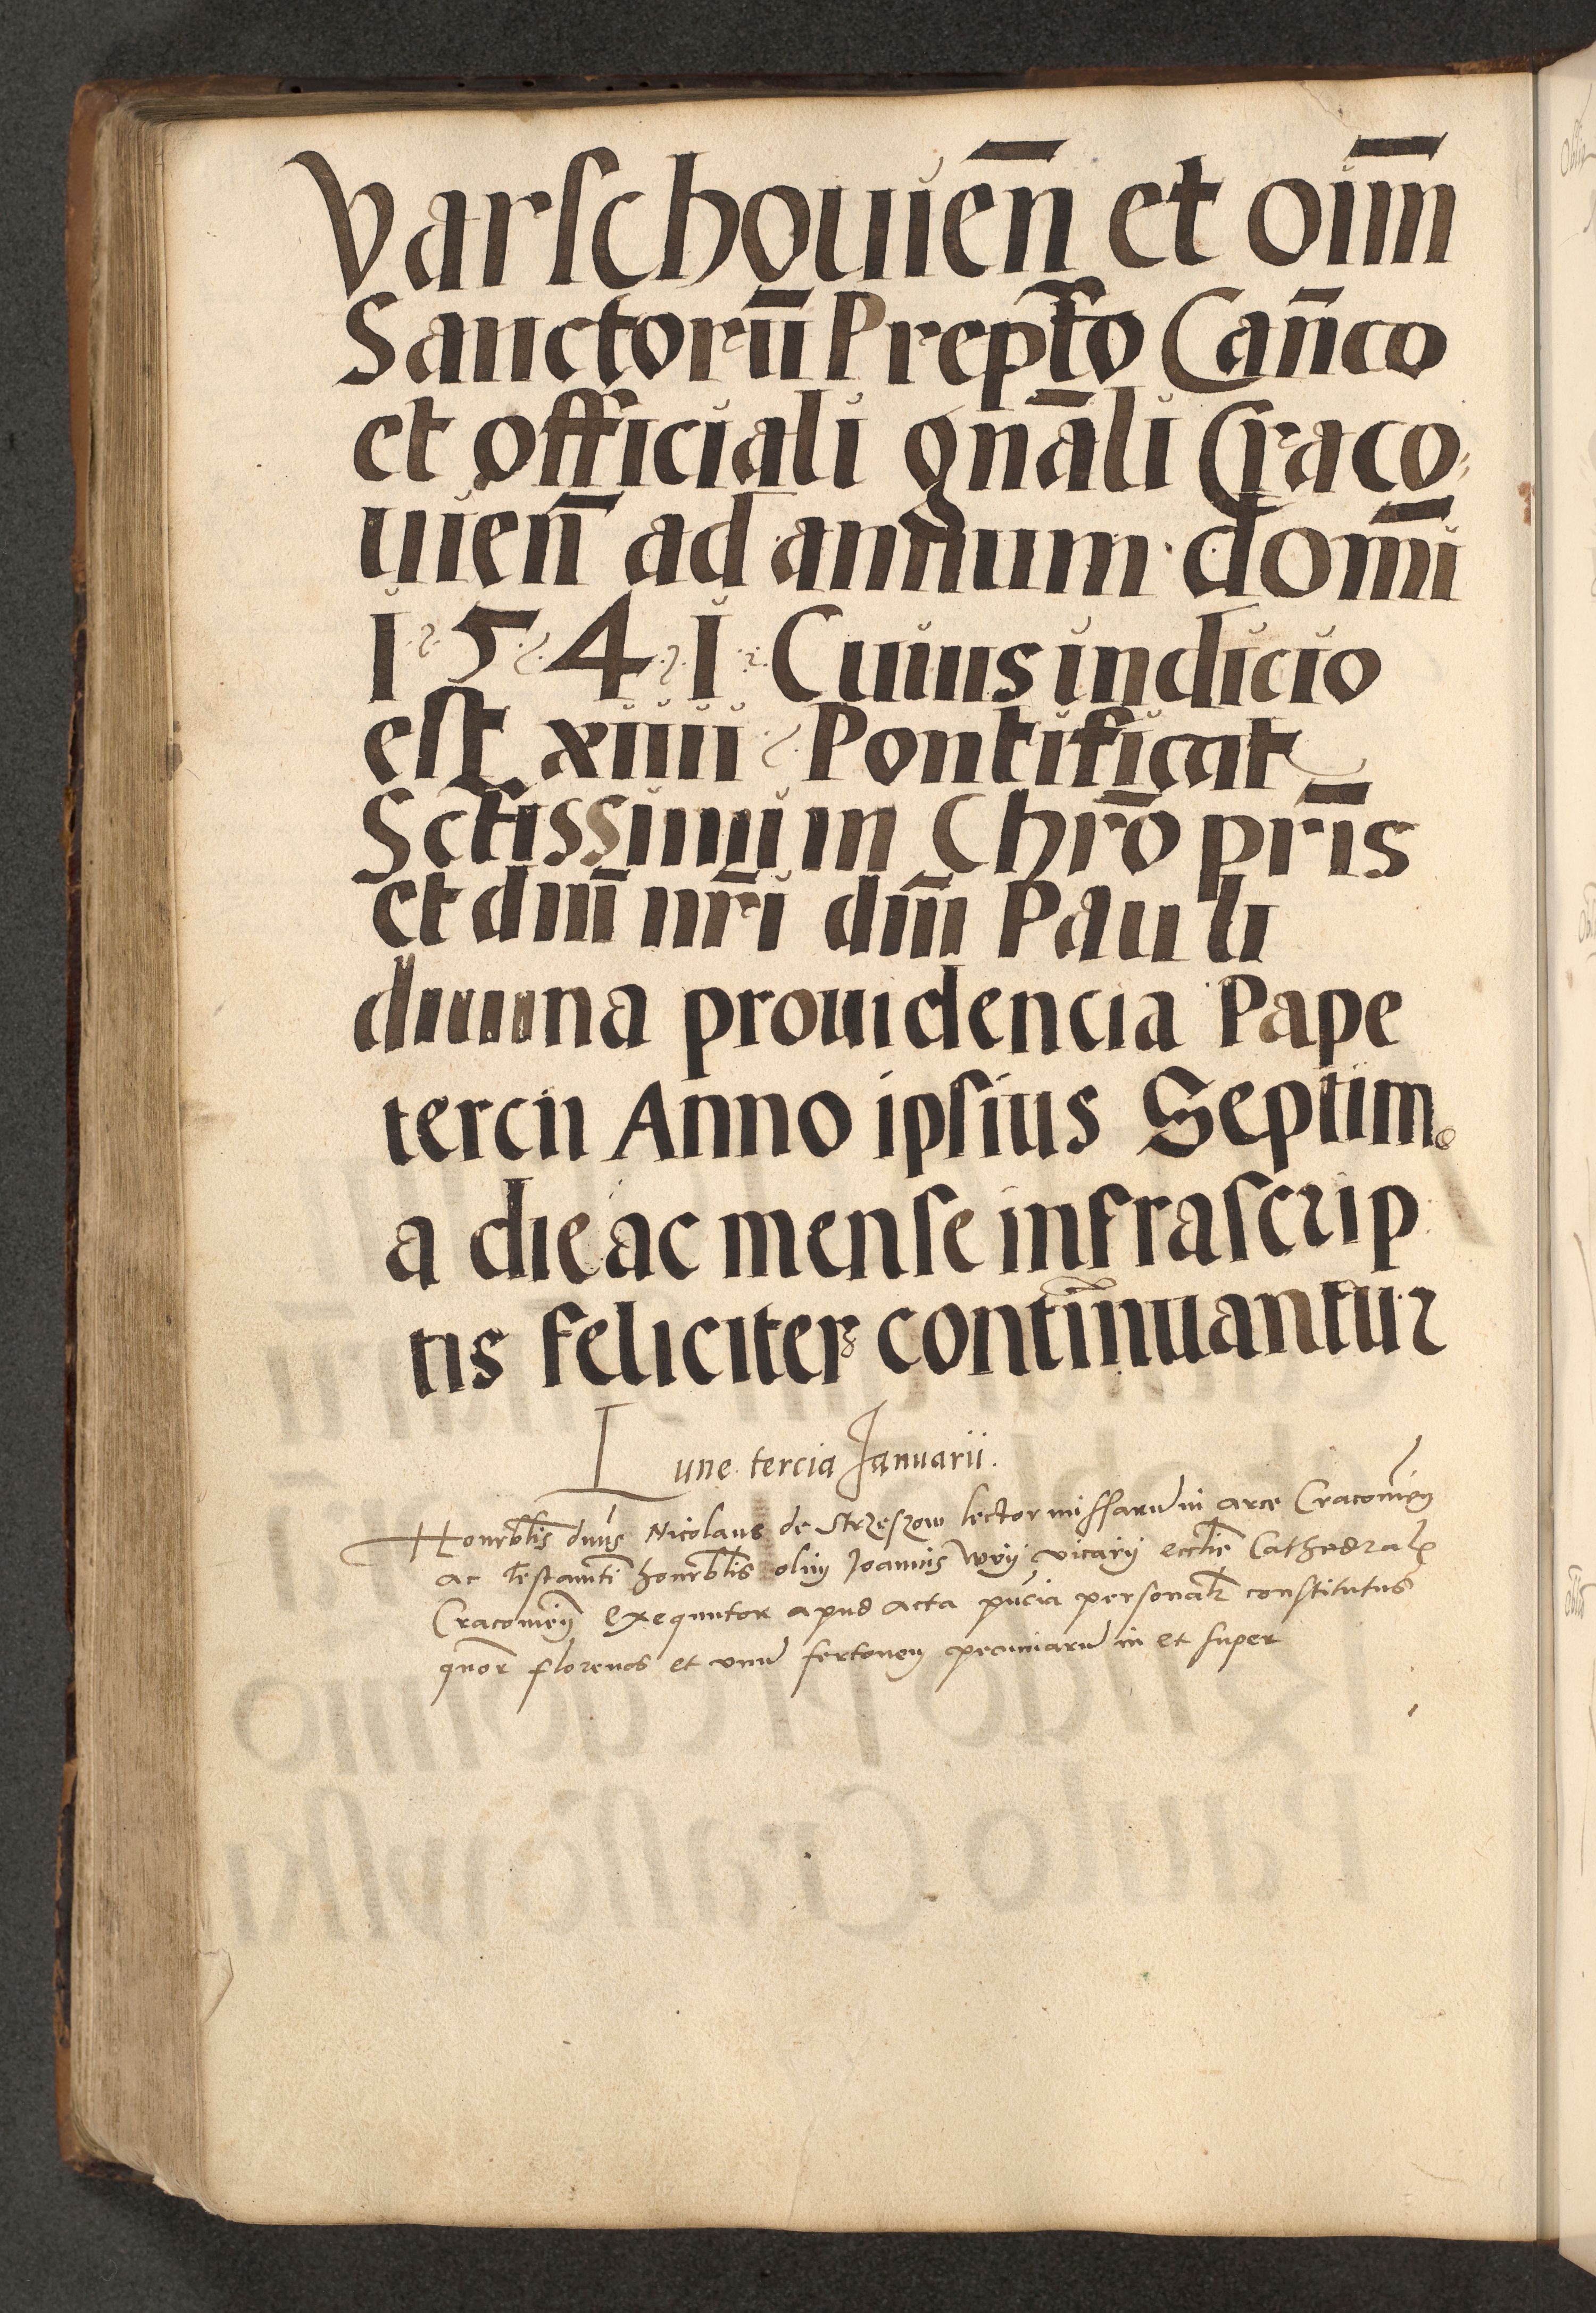 Varſchouień et oim̄
Sanctorū Prepto Can̄co
et officiali gn̄ali Craco
uień ad annum dom̄i
1 5 4 1 Cuius indicio
eſt xiiii Pontificat
Sctissimi in Chrō prīs
et dn̄i nr̄i dn̄i Pauli
diuina prouidencia Pape
tercii Anno ipſius Septimo
a die ac menſe infraſcrip
tis feliciter contīnuantur
Lune tercia Januarii.
Honrblis dnus Nicolaus de Strzeszow lector miſſarū in arce Cracouień
ac Testamti honrblis olim Joannis vicarij ecclie Cathedral
Cracouień exequutor apud acta pncia personalr constitutus
quor florenos et vnū fertonem pecuniarū in et super